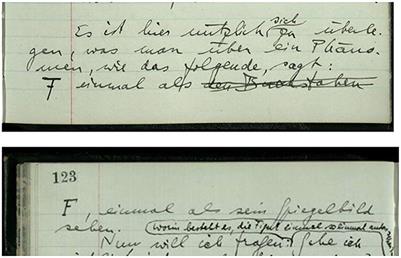 sich
Es ist hier nützlich zu überle-
gen, was man über ein Phäno-
men, wie das folgende, sagt:
F einmal als den Buchstaben
123
F, einmal als sein Spiegelbild
sehen. worin besteht es, die Figur einmal so einmal
Nun will ich fragen: